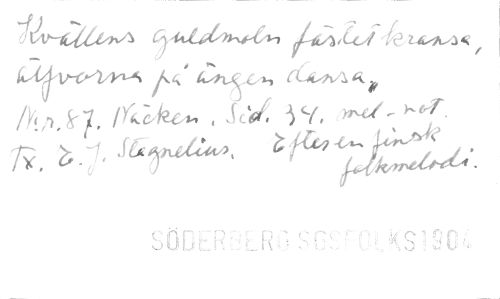 Kvällens guldmoln fästet kransa,
älfvorna på ängen dansa,,
N:r. 87. Näcken. Sid. 34. mel-not.
Tx. E. J. Stagnelius. Efter en finsk
folkmelodi.
SÖDERBERG SGSFOLKS1904